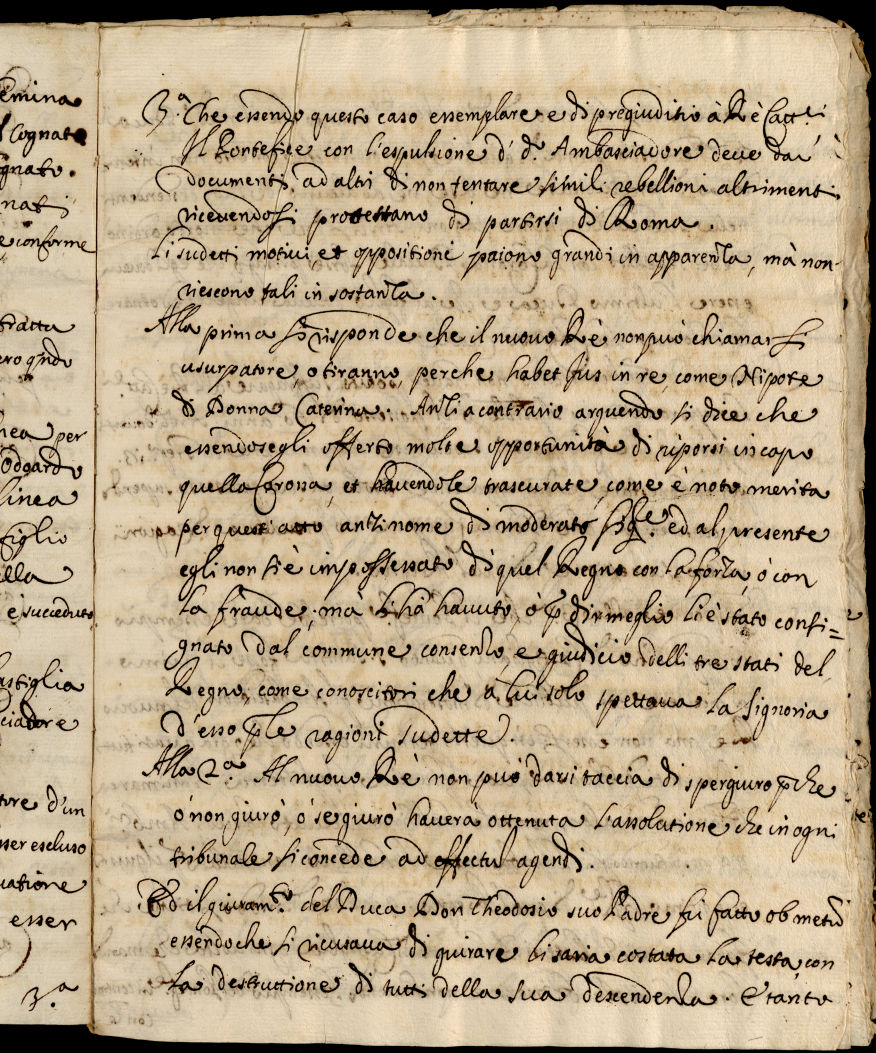 emina
Cognato
gnato.
nati
e conforme
tratta
ero qndo
nea per
Odoardo
linea
figlio
ella
è succeduto
astiglia
ciadore
tore d'un
sser escluso
uatione
esser
3.ª
3.ª Che essendo questo caso essemplare e di pregiuditio à Rè Catt.ci
Il Pontefice con l'espulsione d' d.º Ambasciadore deve dar
documenti ad altri di non tentare simili rebellioni altrimenti
ricevendosi protestano di partirsi di Roma.
Li sudetti motivi, et oppositioni paiono grandi in apparenza, mà non
riescono tali in sostanza.
Alla prima si risponde che il nuovo Rè non può chiamarsi
usurpatore o tiranno, perche habet Jus in re, come Nipote
di Donna Caterina. Anzi a contrario arguendo si dice che
essendosegli offerto molte opportunità di riporsi in capo
quella Corona, et havendole trascurate, come è noto merita
per questi atto anzi nome di moderato ed al presente
egli non si è impossessato di quel Regno con la forza, ò con
la fraude, mà l'hà havuto, ò p dir meglio li è stato consi=
gnato dal commune consenso, e giudicio delli tre stati del
Regno, come conoscitori che à lui solo spettava la Signoria
d'esso p le ragioni sudette.
Alla 2.ª Al nuovo Rè non può darsi taccia di spergiuro pche
ò non giurò, ò se giurò haverà ottenuta l'assolutione che in ogni
tribunale si concede ad effectu agendi.
Ed il giuram.to del Duca Don Theodosio suo Padre fù fatto ob metū
essendo che si ricusava di giurare bisaria costata la testa, con
la destruttione di tutti della sua descendenza. E tanto